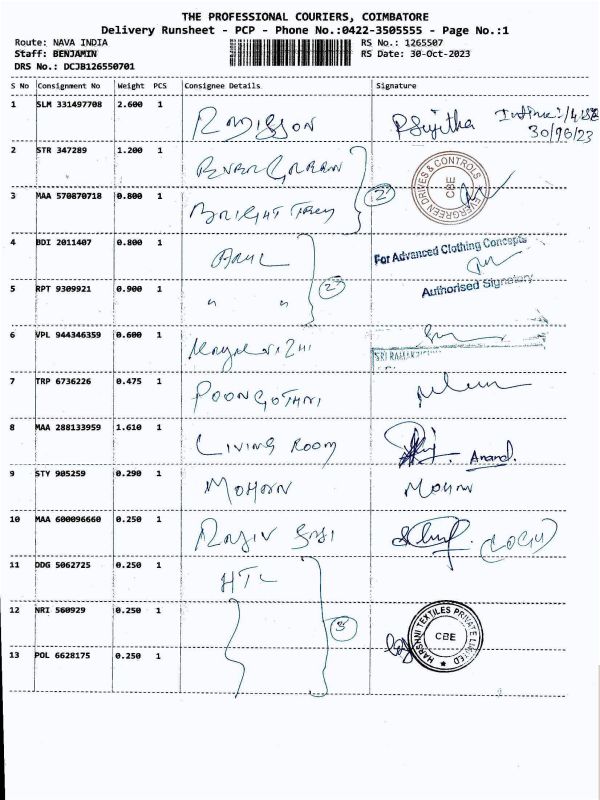 THE PROFESSIONAL COURIERS, COIMBATORE
Delivery Runsheet - PCP - Phone No.:0422-3505555 - Page No.:1
Route: NAVA INDIA RS No.: 1265507
Staff: BENJAMIN RS Date: 30-Oct-2023
DRS No.: DCJB126550701
S No Consignment No Weight PCS Consignee Details Signature
1 SLM 331497708 2.600 1 RADISSON R Sujitha
2 STR 347289 1.200 1 EVERGREEN EVERGREEN DRIVES & CONTROLS CBE
3 MAA 570870718 0.800 1 BRIGHT 2
4 BDI 2011407 0.800 1 For Advanced Clothing Concepts
5 RPT 9309921 0.900 1 " " 2 Authorised Signatory
6 VPL 944346359 0.600 1
7 TRP 6736226 0.475 1 POONGOTHAI
8 MAA 288133959 1.610 1 LIVING ROOM Anand.
9 STY 905259 0.290 1 MOHAN MOHAN
10 MAA 600096660 0.250 1
11 DDG 5062725 0.250 1 HTL
12 NRI 560929 0.250 1 3 HARSHNI TEXTILES PRIVATE LIMITED CBE
13 POL 6628175 0.250 1